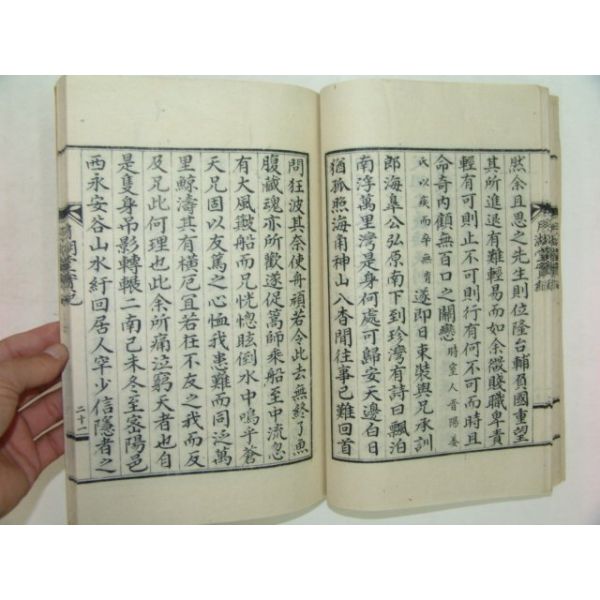 然余且思之先生則位隆台輔負國重望
其所進退有難輕易而如余微賤職卑責
輕有可則止不可則行有何不可而時且
命奇內顧無百口之關戀時室人晋陽姜
氏以疾而卒無育遂即日束裝與兄承訓
郎海摹公弘原南下到珍灣有詩曰飄泊
南浮萬里灣是身何處可歸安天邊白日
猶孤照海甬神山八杳間往事已難回首
問狂波其奈使舟頑若令此去無終了魚
腹藏魂亦所歡遂促篙師乘船至中流忽
有大風皷船而兄恍惚眩倒水中鳴乎蒼
天兄固以友篤之心恤我患難而同泛萬
里鯨濤其有橫厄宜若在不友之我而反
及兄此何理也此余所痛泣窮天者也自
是隻身吊影轉轅二南己未冬至密陽邑
西永安谷山水紆回居人罕少信隱者之
二十一